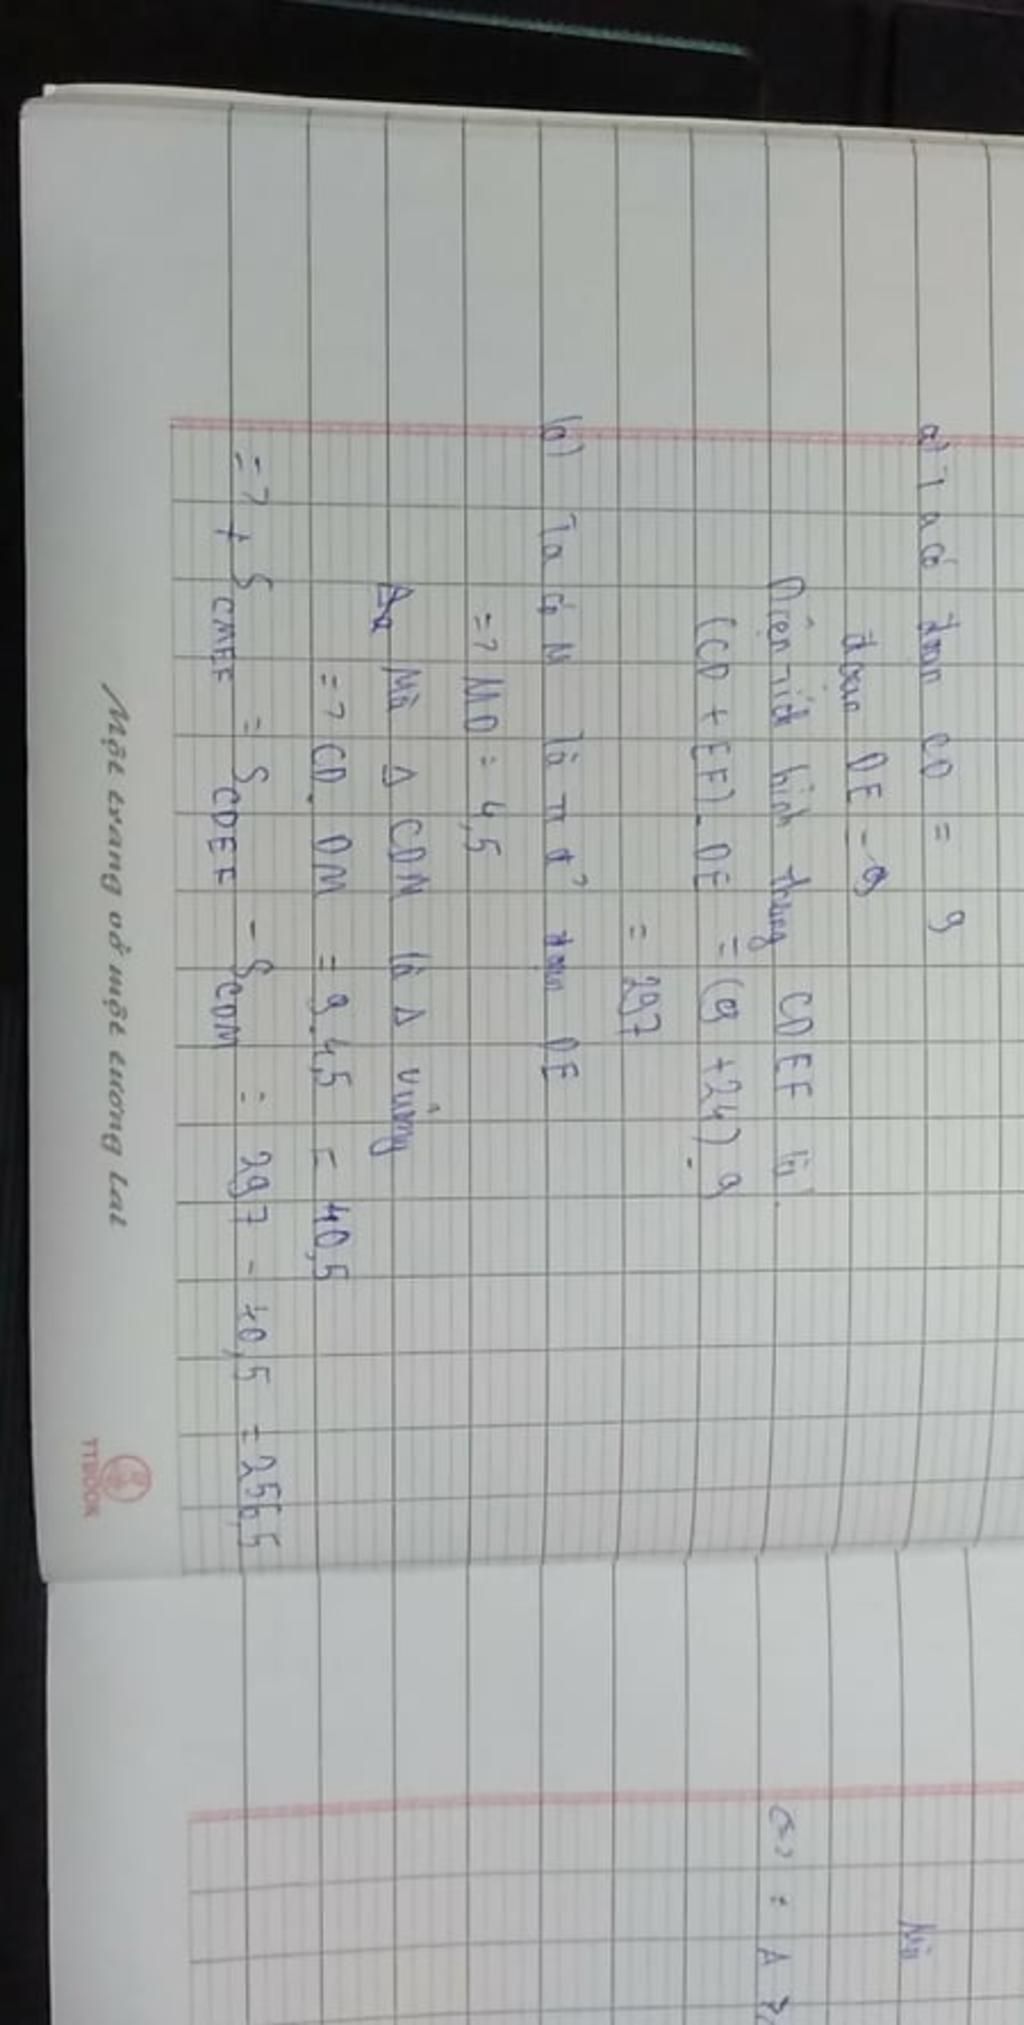 a) Ta có đoạn CD = 9
đoạn DE = 9
Diện tích hình thang CDEF là
(CD + EF) . DE = (9 + 24) . 9
= 297
b) Ta có M là tđ đoạn DE
=> MD = 4,5
Mà Δ CDM là Δ vuông
=> CD. DM = 9.4,5 = 40,5
=> + S CMEF = S CDEF - S CDM = 297 - 40,5 = 256,5
Một trang vở một tương lai
TTBOOK